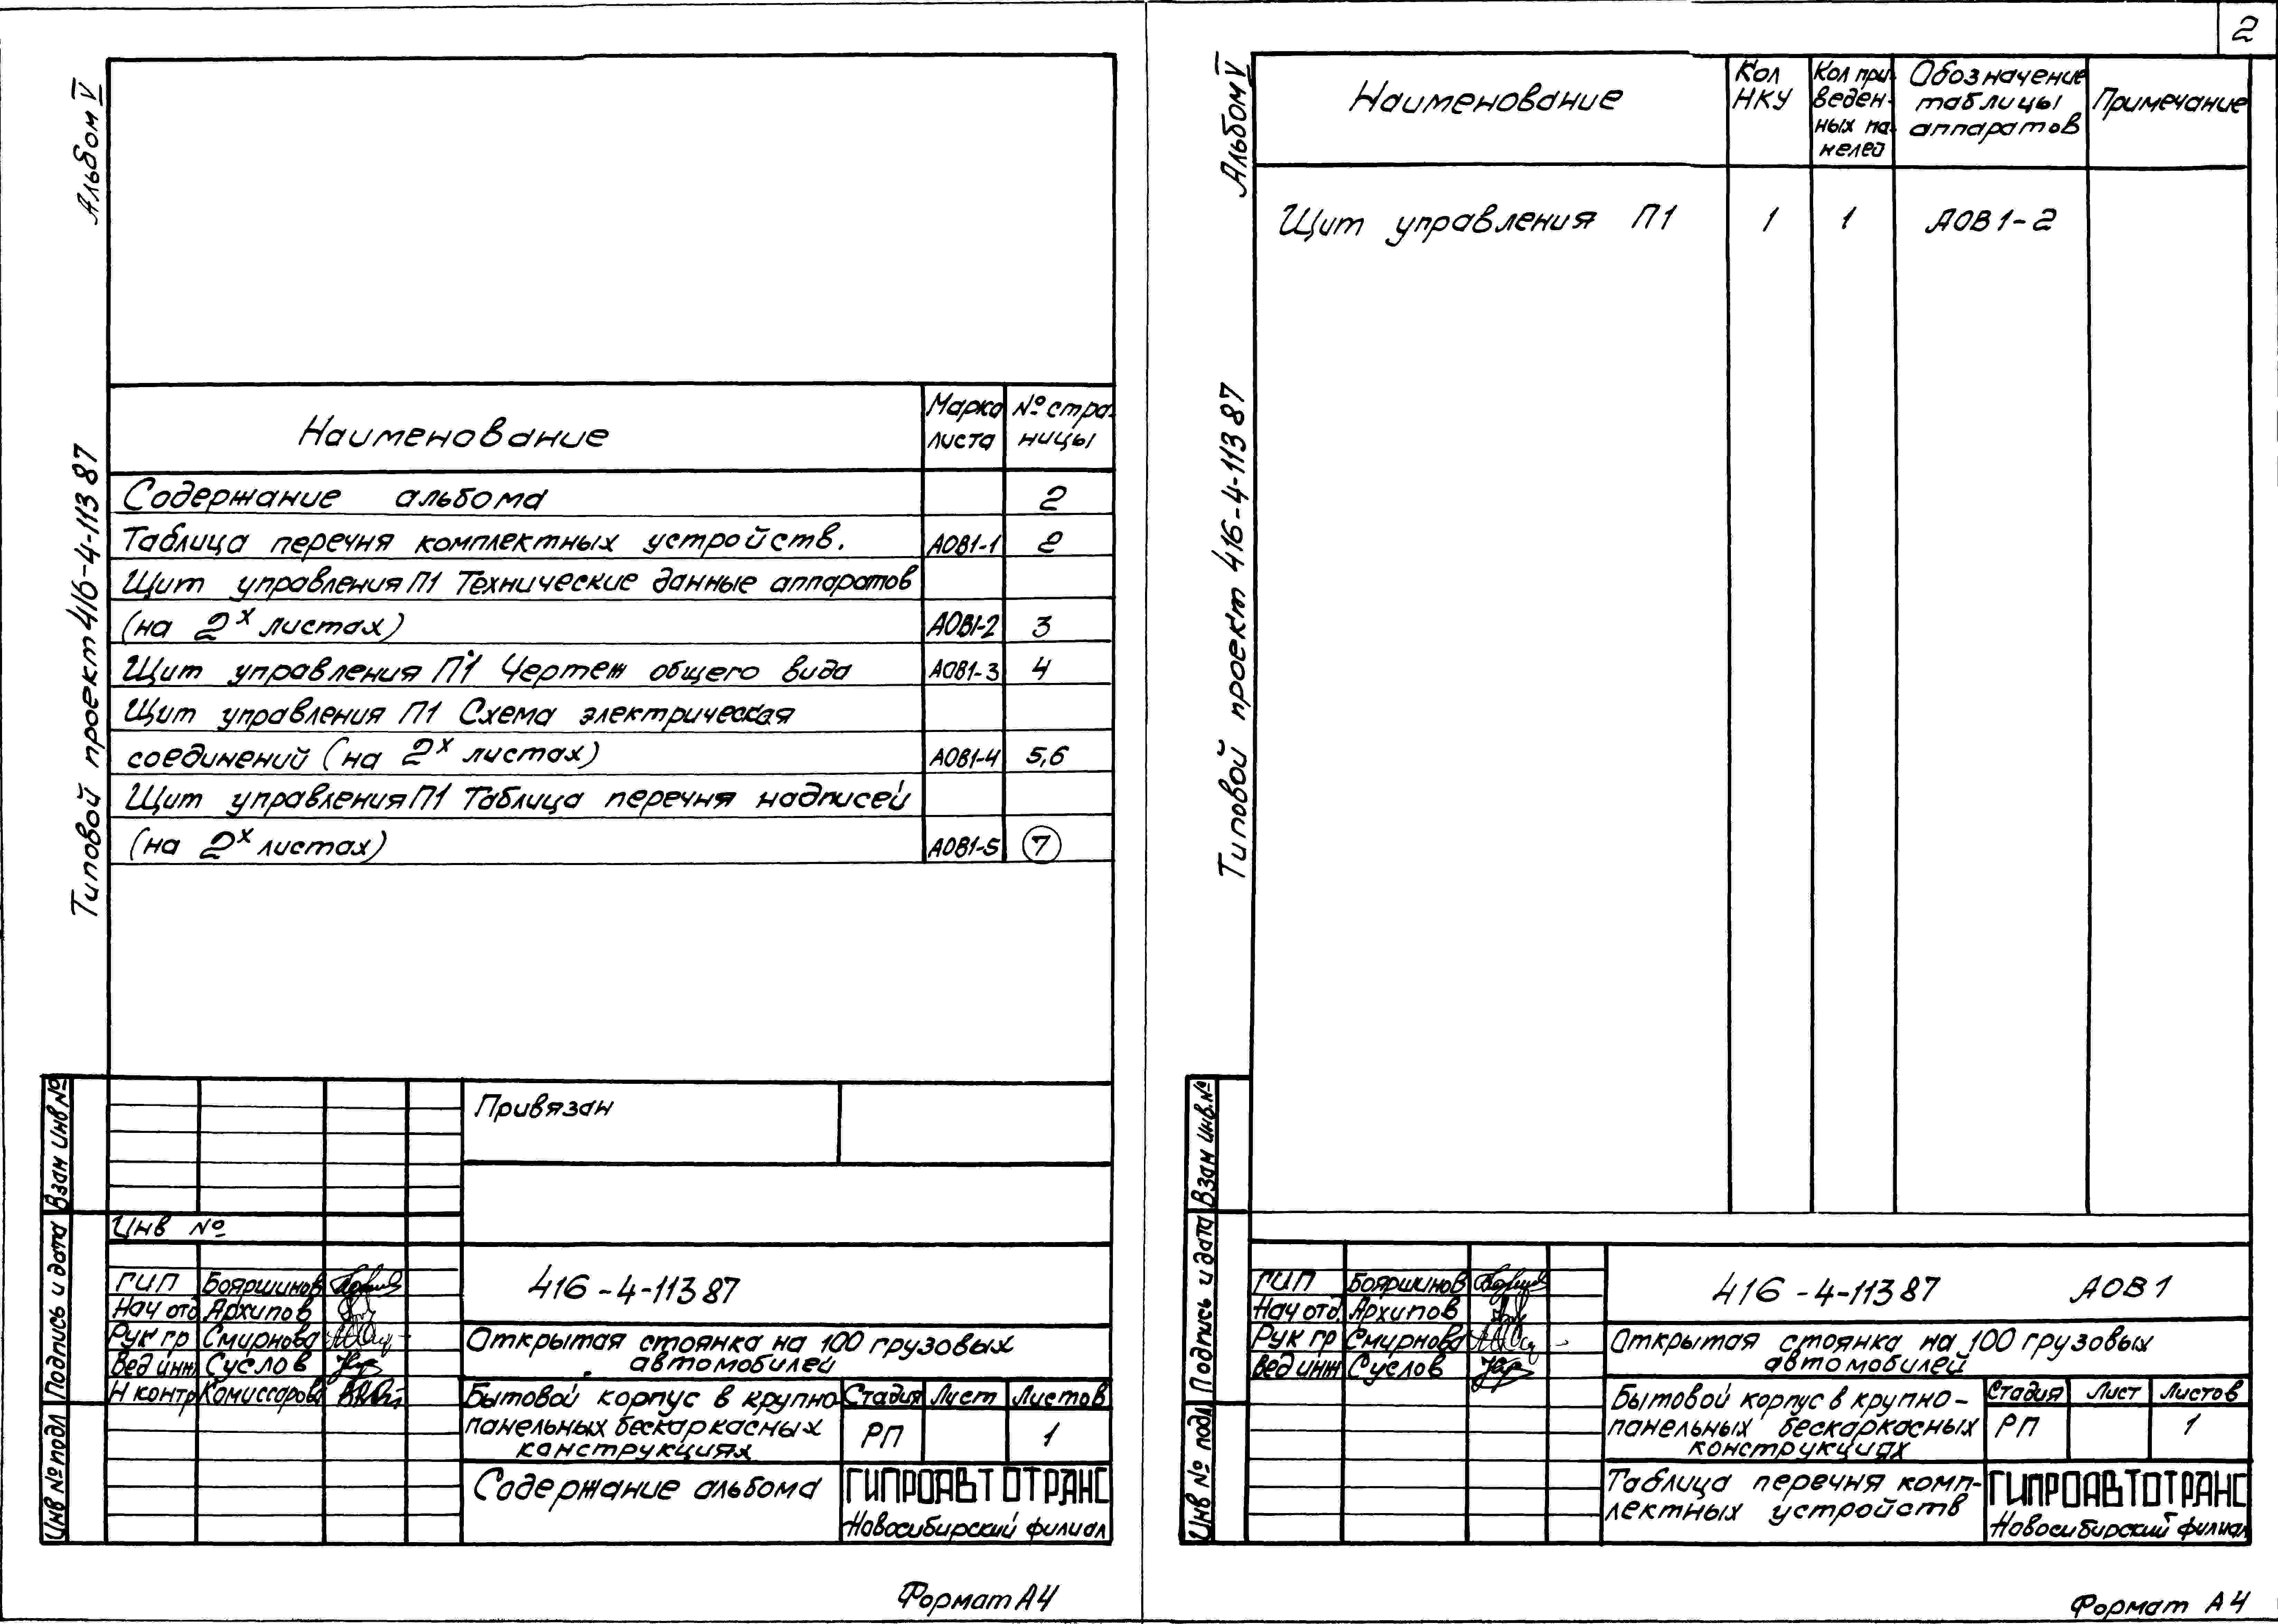 2
Альбом V
Типовой проект 416-4-113 87
Наименование
Марка листа
№ страницы
Содержание альбома 2
Таблица перечня комплектных устройств. АОВ1-1 2
Щит управления П1 Технические данные аппаратов
(на 2х листах) АОВ1-2 3
Щит управления П1 Чертеж общего вида АОВ1-3 4
Щит управления П1 Схема электрическая
соединений (на 2х листах) АОВ1-4 5,6
Щит управления П1 Таблица перечня надписей
(на 2х листах) АОВ1-5 7
Привязан
Инв №
Взам инв №
Подпись и дата
Инв № подл
ГИП Бояршинов
Нач отд Архипов
Рук гр Смирнова
Вед инж Суслов
Н контр Комиссарова
416-4-113 87
Открытая стоянка на 100 грузовых
автомобилей
Бытовой корпус в крупно-
панельных бескаркасных
конструкциях
Стадия Лист Листов
РП 1
Содержание альбома
ГИПРОАВТОТРАНС
Новосибирский филиал
Формат А4
Альбом V
Типовой проект 416-4-113 87
Наименование
Кол
НКУ
Кол при-
веден-
ных па-
нелей
Обозначение
таблицы
аппаратов
Примечание
Щит управления П1 1 1 АОВ1-2
Взам инв.№
Подпись и дата
Инв № подл
ГИП Бояршинов
Нач отд. Архипов
Рук гр Смирнова
Вед инж Суслов
416-4-113 87 АОВ1
Открытая стоянка на 100 грузовых
автомобилей
Бытовой корпус в крупно-
панельных бескаркасных
конструкциях
Стадия Лист Листов
РП 1
Таблица перечня комп-
лектных устройств
ГИПРОАВТОТРАНС
Новосибирский филиал
Формат А4